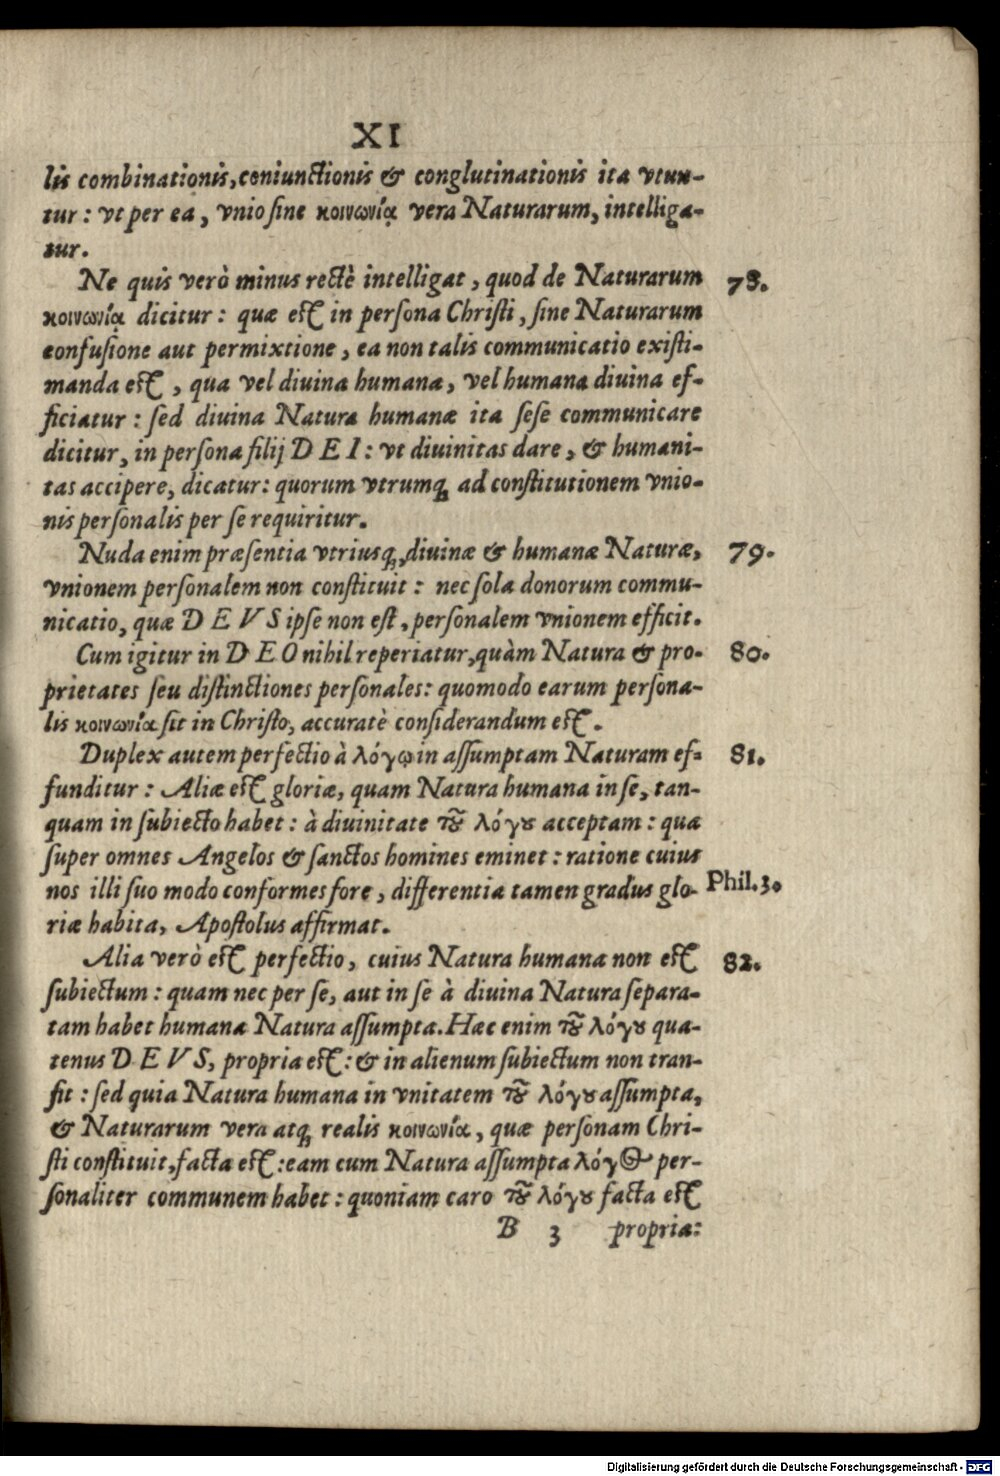 XI
lis combinationis, coniunctionis & conglutinationis ita vtun-
tur: vt per ea, vnio sine κοινωνίᾳ vera Naturarum, intelliga-
tur.
Ne quis verò minus rectè intelligat, quod de Naturarum 78.
κοινωνίᾳ dicitur: quæ est in persona Christi, sine Naturarum
confusione aut permixtione, ea non talis communicatio existi-
manda est, qua vel diuina humana, vel humana diuina ef-
ficiatur: sed diuina Natura humanæ ita sese communicare
dicitur, in persona filij DEI: vt diuinitas dare, & humani-
tas accipere, dicatur: quorum vtrumq; ad constitutionem vnio-
nis personalis per se requiritur.
Nuda enim præsentia vtriusq;, diuinæ & humanæ Naturæ, 79.
vnionem personalem non constituit: nec sola donorum commu-
nicatio, quæ DEVS ipse non est, personalem vnionem efficit.
Cum igitur in DEO nihil reperiatur, quàm Natura & pro- 80.
prietates seu distinctiones personales: quomodo earum persona-
lis κοινωνία sit in Christo, accuratè considerandum est.
Duplex autem perfectio à λόγῳ in assumptam Naturam ef- 81.
funditur: Aliæ est gloriæ, quam Natura humana in se, tan-
quam in subiecto habet: à diuinitate τȣ͂ λόγȣ acceptam: qua
super omnes Angelos & sanctos homines eminet: ratione cuius
nos illi suo modo conformes fore, differentia tamen gradus glo- Phil. 3.
riæ habita, Apostolus affirmat.
Alia verò est perfectio, cuius Natura humana non est 82.
subiectum: quam nec per se, aut in se à diuina Natura separa-
tam habet humana Natura assumpta. Hæc enim τȣ͂ λόγȣ qua-
tenus DEVS, propria est: & in alienum subiectum non tran-
sit: sed quia Natura humana in vnitatem τȣ͂ λόγȣ assumpta,
& Naturarum vera atq; realis κοινωνία, quæ personam Chri-
sti constituit, facta est: eam cum Natura assumpta λόγος per-
sonaliter communem habet: quoniam caro τȣ͂ λόγȣ facta est
B 3 propria:
Digitalisierung gefördert durch die Deutsche Forschungsgemeinschaft - DFG